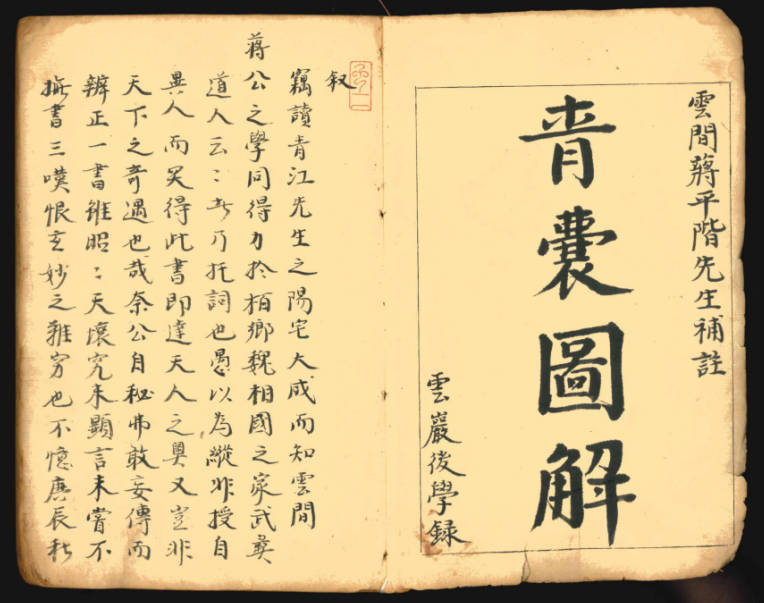 雲間蔣平階先生補註
青囊圖解
雲巖後學録
叙
竊讀青江先生之陽宅大成而知雲間
蔣公之學同得力於栢鄉魏相國之家武夷
道人云〻者乃托詞也愚以為縱非授自
異人而笑得此書即達天人之奥又豈非
天下之奇遇也哉奈公自秘弗敢妄傳而
辨正一書雖昭〻天壤究未顯言未嘗不
撫書三嘆恨玄妙之難窮也不憶庚辰秋